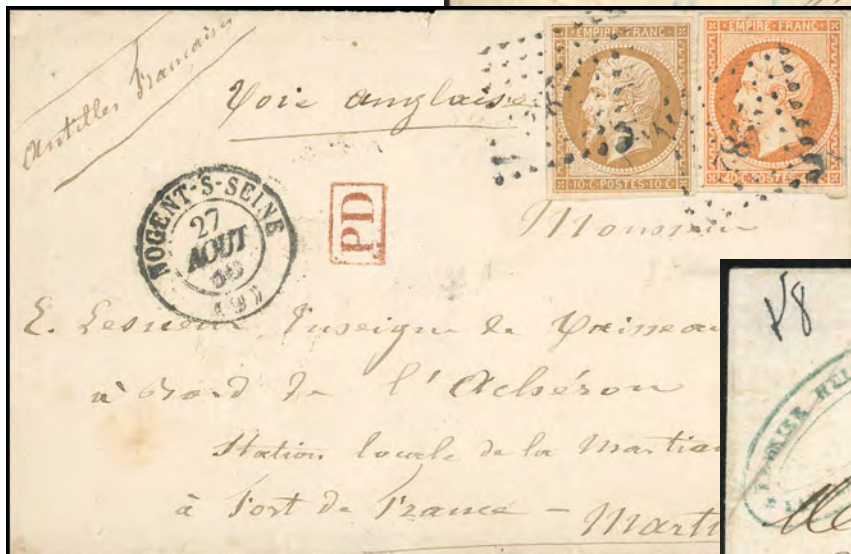 Antilles Françaises
Voie anglaise
EMPIRE FRANC
10 C · POSTES · 10 C
EMPIRE FRANC
40 C · POSTES · 40 C
NOGENT-S-SEINE
27
AOUT
PD
Monsieur
E. Lesueur, Enseigne de Vaisseau
à bord de l'Achéron
Station locale de la Martin
à Fort de France - Marti